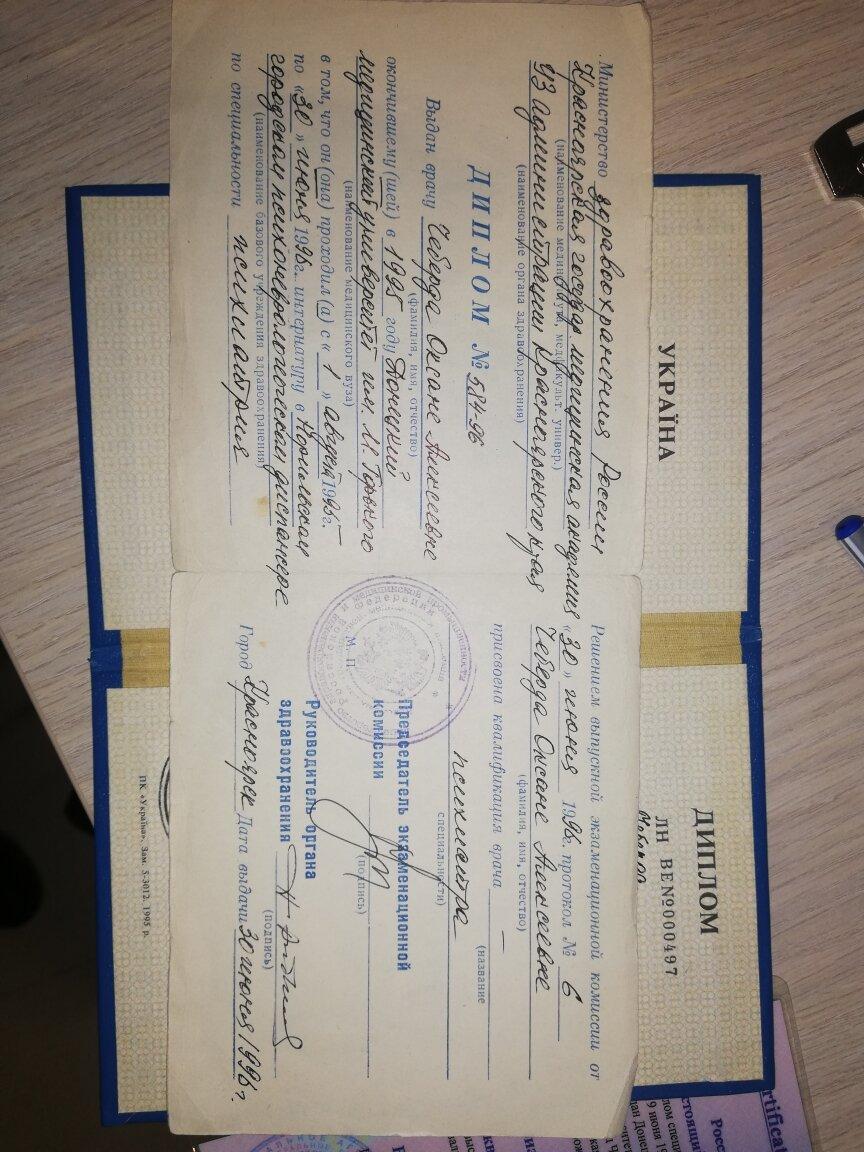 Министерство здравоохранения России
Красноярская государ. медицинская академия
(наименование мединститута, мед. факульт. универ.)
УЗ Администрации Красноярского края
(наименование органа здравоохранения)
ДИПЛОМ № 584-96
Выдан врачу Чеберда Оксане Алексеевне
(фамилия, имя, отчество)
окончившему (шей) в 1995 году Донецкий
медицинский университет им. М. Горького
(наименование медицинского вуза)
в том, что он (она) проходил (а) с « 1 » августа 1995 г.
по « 30 » июня 1996 г. интернатуру в Норильском
городском психоневрологическом диспансере
(наименование базового учреждения здравоохранения)
по специальности психиатрия
Решением выпускной экзаменационной комиссии от
« 30 » июня 1996 г. протокол № 6
Чеберда Оксане Алексеевне
(фамилия, имя, отчество)
присвоена квалификация врача —
(название
психиатра
специальности)
Председатель экзаменационной
комиссии
(подпись)
М. П.
Руководитель органа
здравоохранения
(подпись)
Город Красноярск Дата выдачи 30 июня 1996 г.
УКРАЇНА
ДИПЛОМ
ЛН ВЕ №000497
ПК «Україна». Зам. 5-3012. 1995 р.